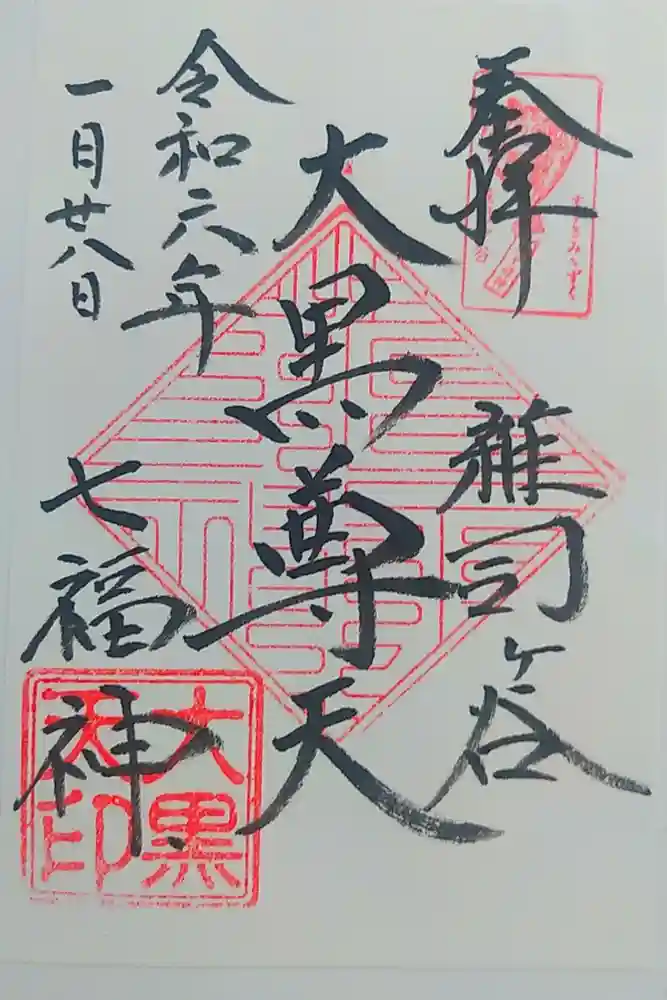 奉拝
すゝきみゝずく
雑司ヶ谷
大黒尊天
令和六年
一月廿八日
七福神
大黒
天印